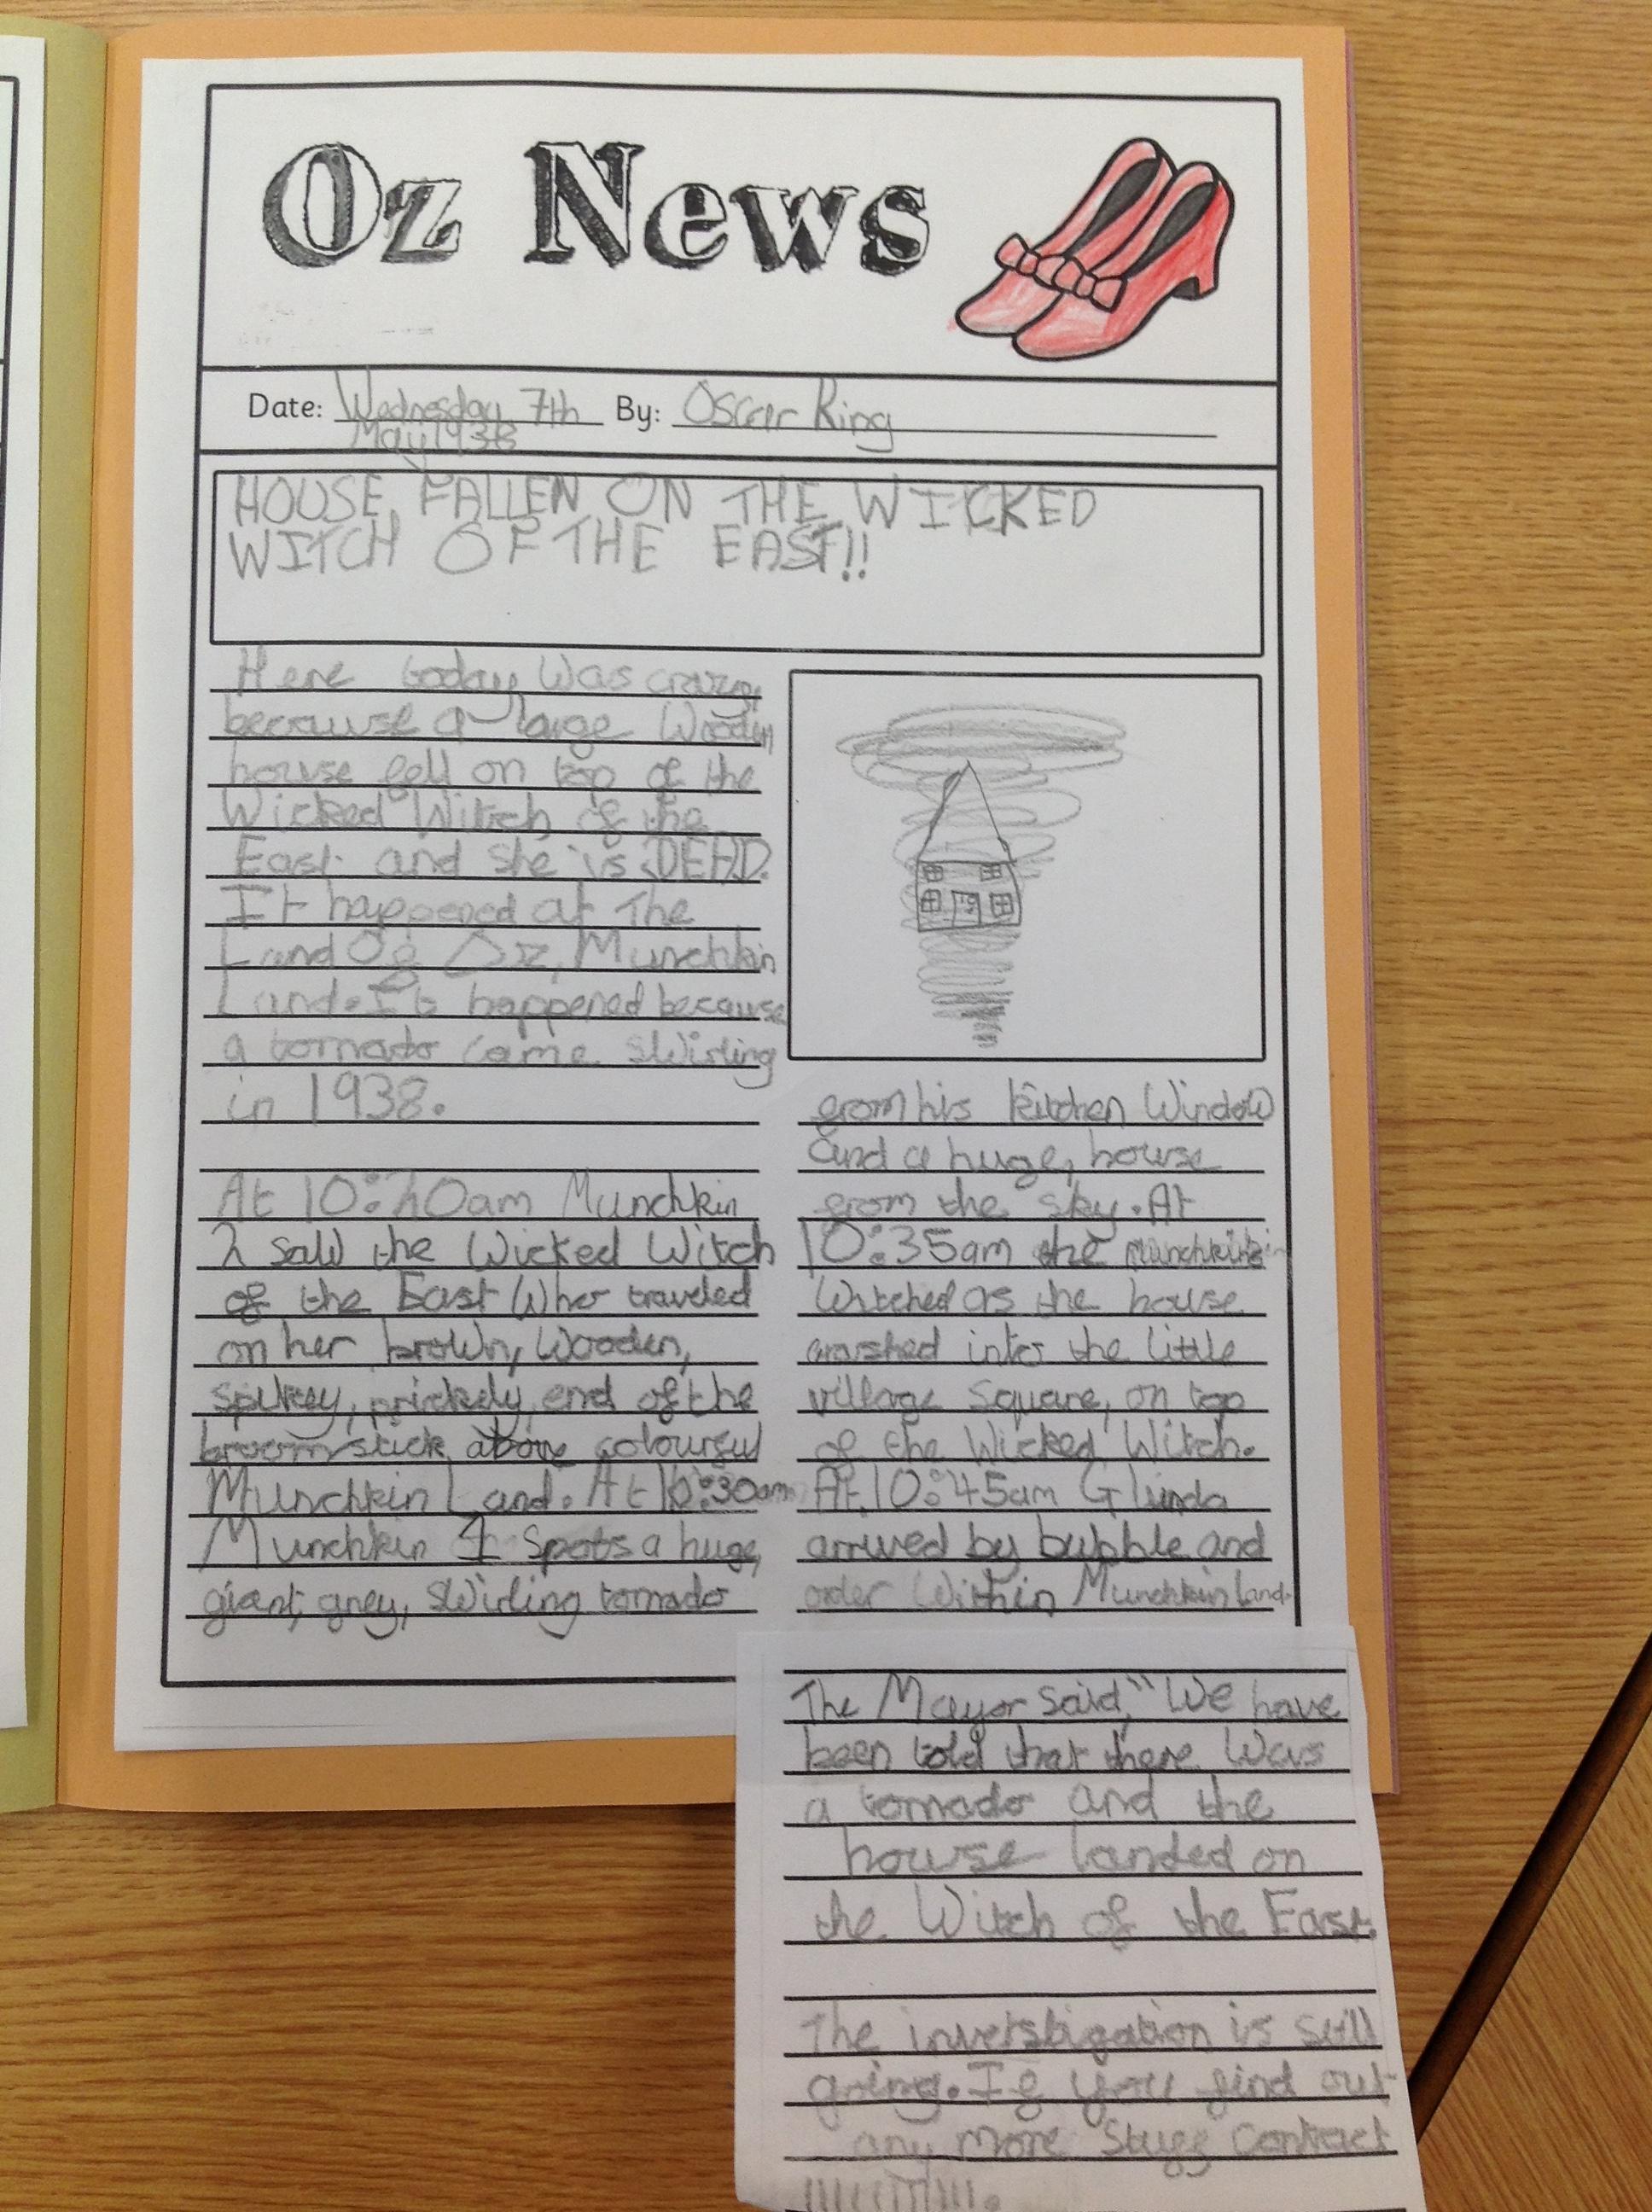 Oz News
Date: Wednesday 7th By: Oscar King
May 1938
HOUSE FALLEN ON THE WICKED
WITCH OF THE EAST!!
Here today was crazy,
because a large wooden
house fell on top of the
Wicked Witch of the
East and she is DEAD.
It happened at The
Land Of Oz, Munchkin
Land. It happened because
a tornado came swirling
in 1938.
At 10:20am Munchkin
2 saw the Wicked Witch
of the East who traveled
on her brown, wooden,
spikey, prickely, end of the
broomstick above colourful
Munchkin Land. At 10:30am
Munchkin 1 spots a huge,
giant, grey, swirling tornado
from his kitchen window
and a huge, house
from the sky. At
10:35am the Munchkins
watched as the house
crashed into the little
village square, on top
of the Wicked Witch.
At 10:45am Glinda
arrived by bubble and
order within Munchkin Land.
The Mayor said, "We have
been told that there was
a tornado and the
house landed on
the Witch of the East.
The investigation is still
going. If you find out
any more stuff contact